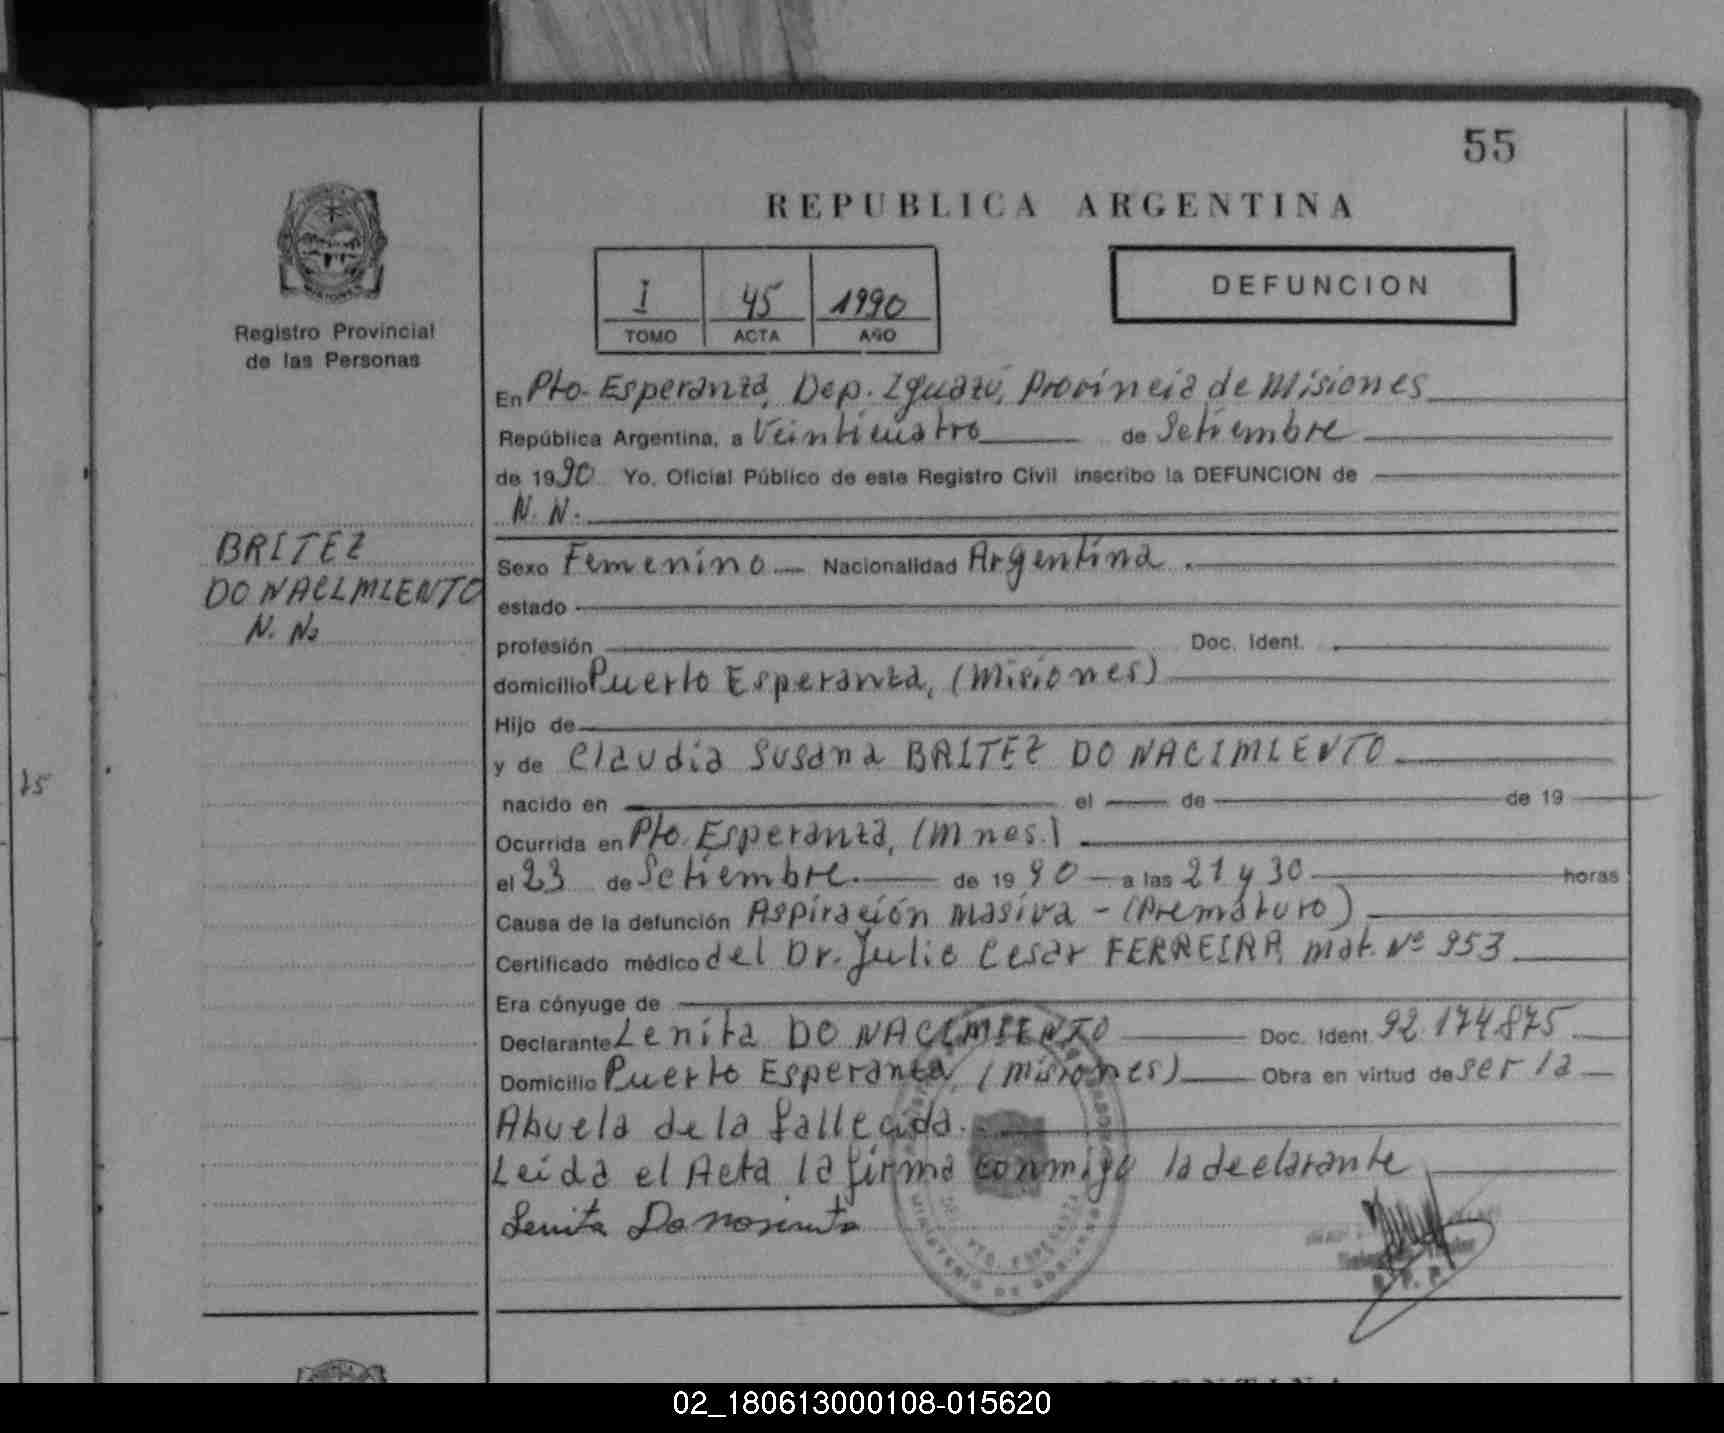 55
REPUBLICA ARGENTINA
I 45 1990
TOMO ACTA AÑO
DEFUNCION
Registro Provincial
de las Personas
En Pto. Esperanza, Dep. Iguazú, Provincia de Misiones
República Argentina, a Veinticuatro de Setiembre
de 1990 Yo, Oficial Público de este Registro Civil inscribo la DEFUNCION de
N. N.
BRITEZ
DO NACIMIENTO
N. N.
Sexo Femenino Nacionalidad Argentina.
estado
profesión Doc. Ident.
domicilio Puerto Esperanza, (Misiones)
Hijo de
y de Claudia Susana BRITEZ DO NACIMIENTO
nacido en el de de 19
Ocurrida en Pto. Esperanza, (Mnes.)
el 23 de Setiembre. de 1990 a las 21 y 30 horas
Causa de la defunción Aspiración masiva - (Prematuro)
Certificado médico del Dr. Julio Cesar FERREIRA mat. Nº 953
Era cónyuge de
Declarante Lenita DO NACIMIENTO Doc. Ident. 92.174.875
Domicilio Puerto Esperanza, (Misiones) Obra en virtud de ser la
Abuela de la fallecida.
Leída el Acta la firma conmigo la declarante
Lenita Do
MINISTERIO DE GOBIERNO
PTO. ESPERANZA
R. P. P.
15
02_180613000108-015620